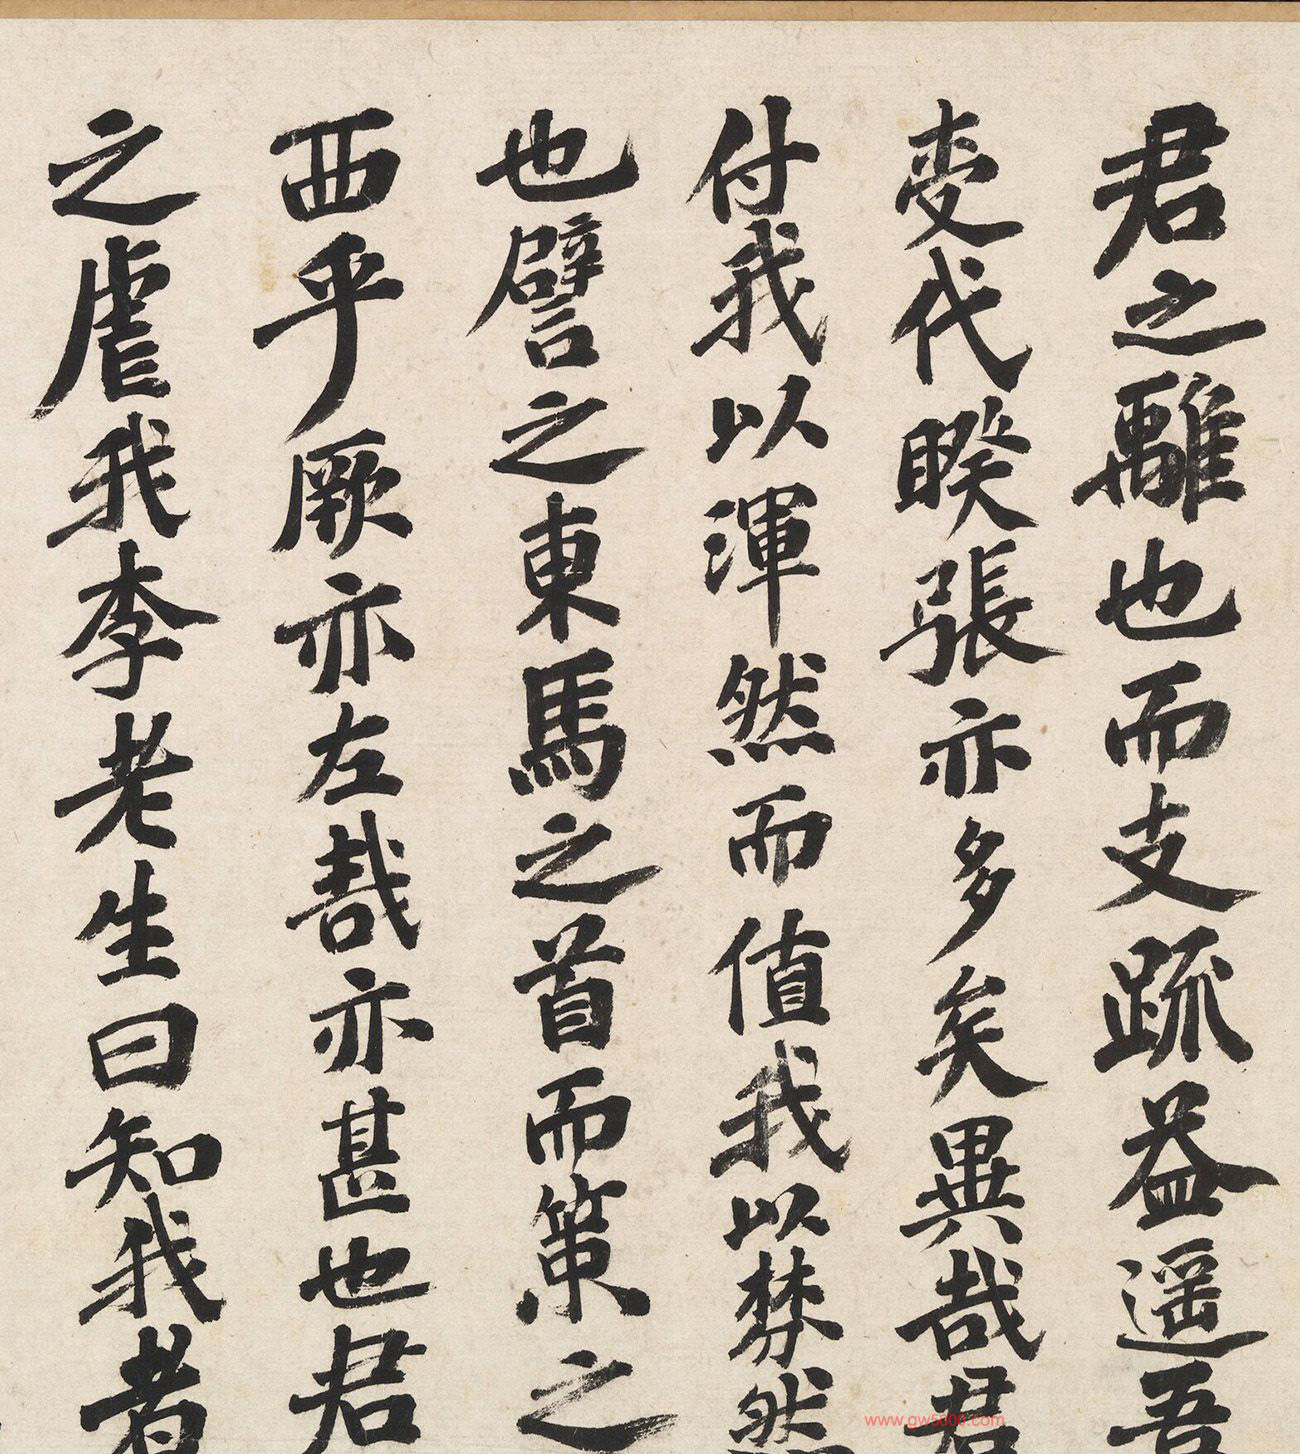 君之離也而支疏益遥吾
变代睽張亦多矣異哉君
付我以渾然而值我以棼然
也譬之東馬之首而策之
西乎厥亦左哉亦甚也君
之虐我李老生曰知我者
www.gw5000.com